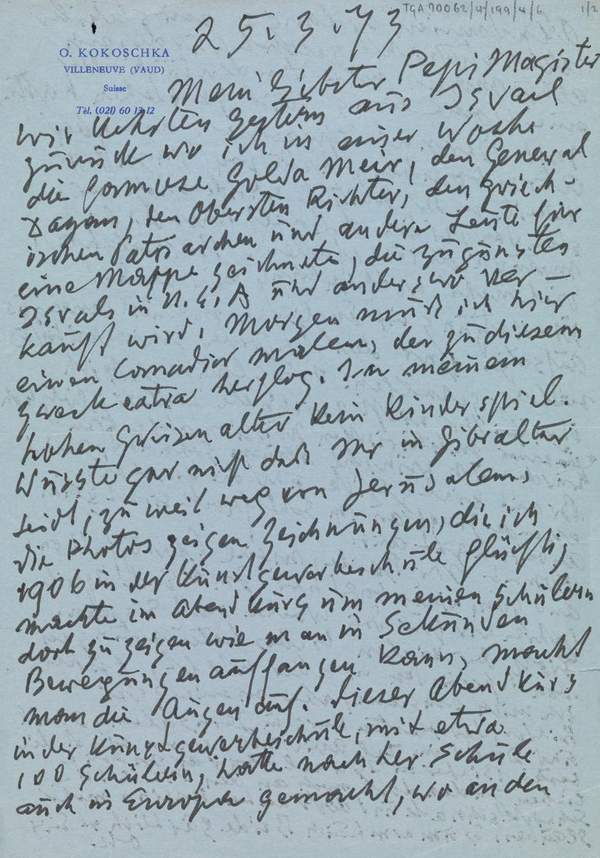 TGA 20062/4/199/4/6 1/2
O. KOKOSCHKA
VILLENEUVE (VAUD)
Suisse
Tél. (021) 60 12 12
25.3.73
Mein liebster Pepi Magister
wir kehrten gestern aus Israel
zurück wo ich in einer Woche
die famose Golda Meir, den General
Dayan, den Obersten Richter, den griech-
ischen Patriarchen und andere Leute für
eine Mappe zeichnete, die zugunsten
Israels in U.S.A und anderswo ver-
kauft wird. Morgen muß ich hier
einen malen, der zu diesem
Zweck extra herflog. In meinem
hohen Greisenalter kein Kinderspiel.
Wusste gar nicht daß Ihr in Gibraltar
seid, zu weit weg von Jerusalem.
die Photos zeigen Zeichnungen, die ich
1906 in der Kunstgewerbeschule flüchtig
machte im Abendkurs um meinen Schülern
dort zu zeigen wie man in Sekunden
Bewegungen auffangen kann, macht
man die Augen auf. Dieser Abendkurs
in der Kunstgewerbeschule, mit etwa
100 Schülern, hatte nachher Schule
auch in Europa gemacht, wo an den